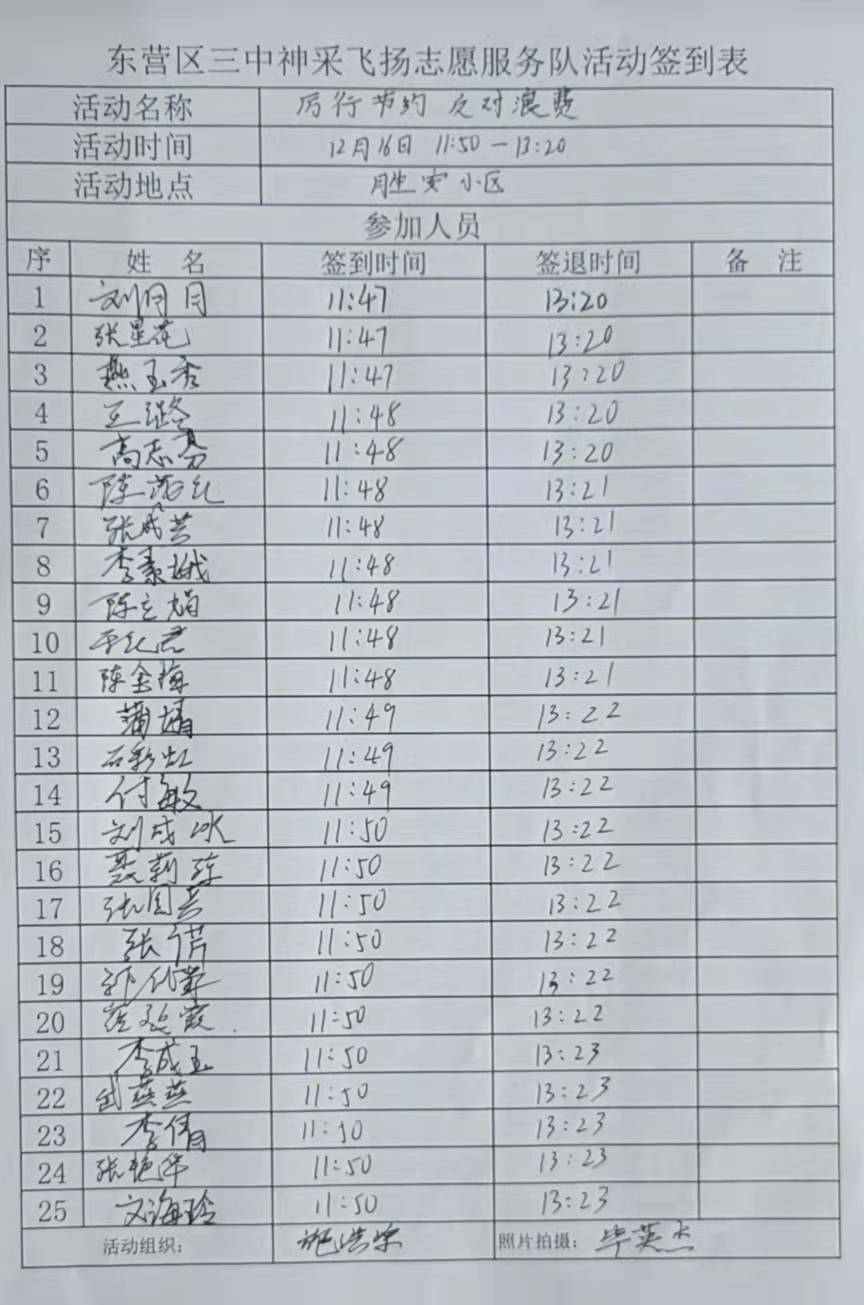 东营区三中神采飞扬志愿服务队活动签到表
活动名称 厉行节约 反对浪费
活动时间 12月16日 11:50—13:20
活动地点 胜安小区
参加人员
序 姓 名 签到时间 签退时间 备 注
1 刘月月 11:47 13:20
2 张星花 11:47 13:20
3 燕玉秀 11:47 13:20
4 王璐 11:48 13:20
5 高志芬 11:48 13:20
6 陈 11:48 13:21
7 张成芸 11:48 13:21
8 李素娥 11:48 13:21
9 陈立娟 11:48 13:21
10 11:48 13:21
11 陈金梅 11:48 13:21
12 蒲娟 11:49 13:22
13 石彩虹 11:49 13:22
14 付敏 11:49 13:22
15 刘成冰 11:50 13:22
16 聂莉萍 11:50 13:22
17 张国芸 11:50 13:22
18 张 11:50 13:22
19 11:50 13:22
20 霞 11:50 13:22
21 李成玉 11:50 13:23
22 武燕燕 11:50 13:23
23 李倩 11:50 13:23
24 张艳华 11:50 13:23
25 文海玲 11:50 13:23
活动组织： 照片拍摄： 毕英杰